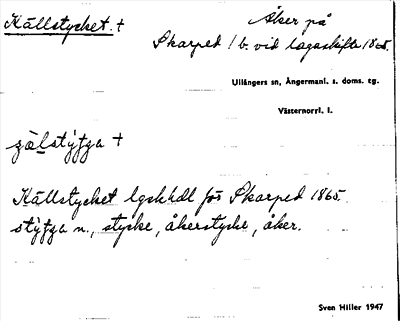 Källstycket. †
Åker på
Skarped 1 b. vid lagaskifte 1865.
Ullångers sn, Ångermanl. s. doms. tg.
Västernorrl. l.
Källstycket lgskhdl för Skarped 1865.
n., stycke, åkerstycke, åker.
Sven Hiller 1947